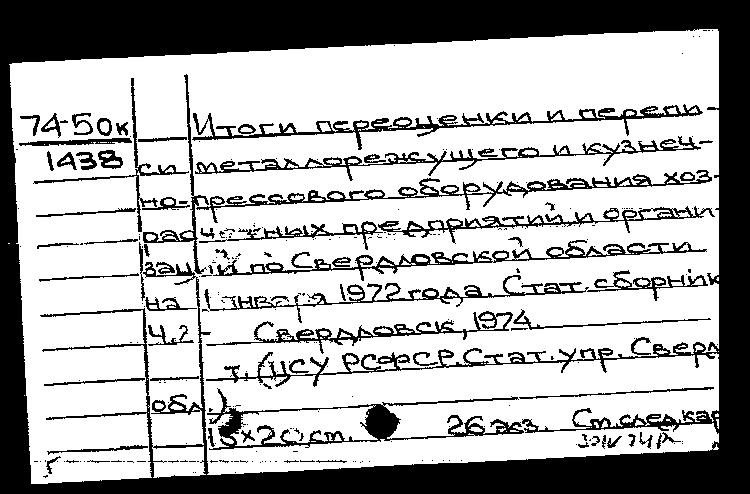 74-50к Итоги переоценки и перепи-
1438 си металлорежущего и кузнеч-
но-прессового оборудования хоз-
расчетных предприятий и органи-
заций по Свердловской области
на 1 января 1972 года. Стат. сборник
Ч.2- Свердловск, 1974.
т. (ЦСУ РСФСР. Стат. упр. Сверд
обл.)
15×20 см. 26 экз. Ст. след. кар